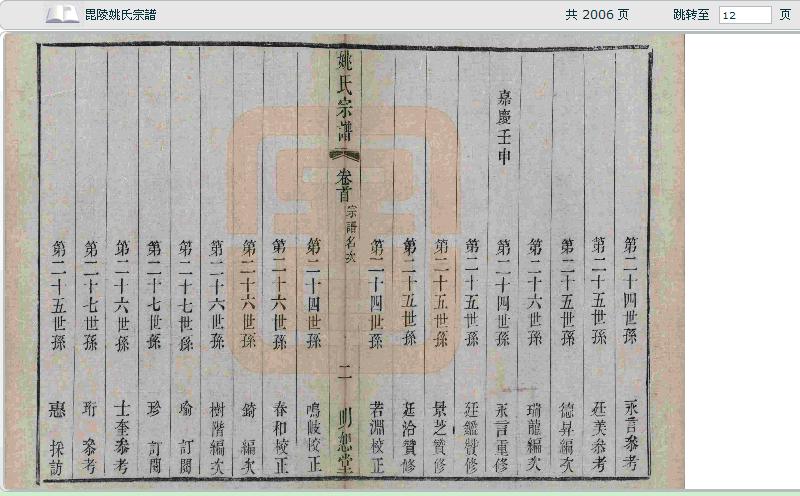 毘陵姚氏宗譜
共 2006 页
跳转至 12 页
第二十四世孫 永言叅考
第二十五世孫 廷美叅考
第二十五世孫 德昇編次
第二十六世孫 瑞龍編次
嘉慶壬申 第二十四世孫 永言重修
第二十五世孫 廷鑑贊修
第二十五世孫 景芝贊修
第二十五世孫 廷洽贊修
第二十四世孫 若淵校正
姚氏宗譜 卷首 宗譜名次 二 明恕堂
第二十四世孫 鳴歧校正
第二十六世孫 春和校正
第二十六世孫 錡 編次
第二十六世孫 樹階編次
第二十七世孫 瑜 訂閱
第二十七世孫 珍 訂閱
第二十六世孫 士奎叅考
第二十七世孫 珩 叅考
第二十五世孫 惠 採訪